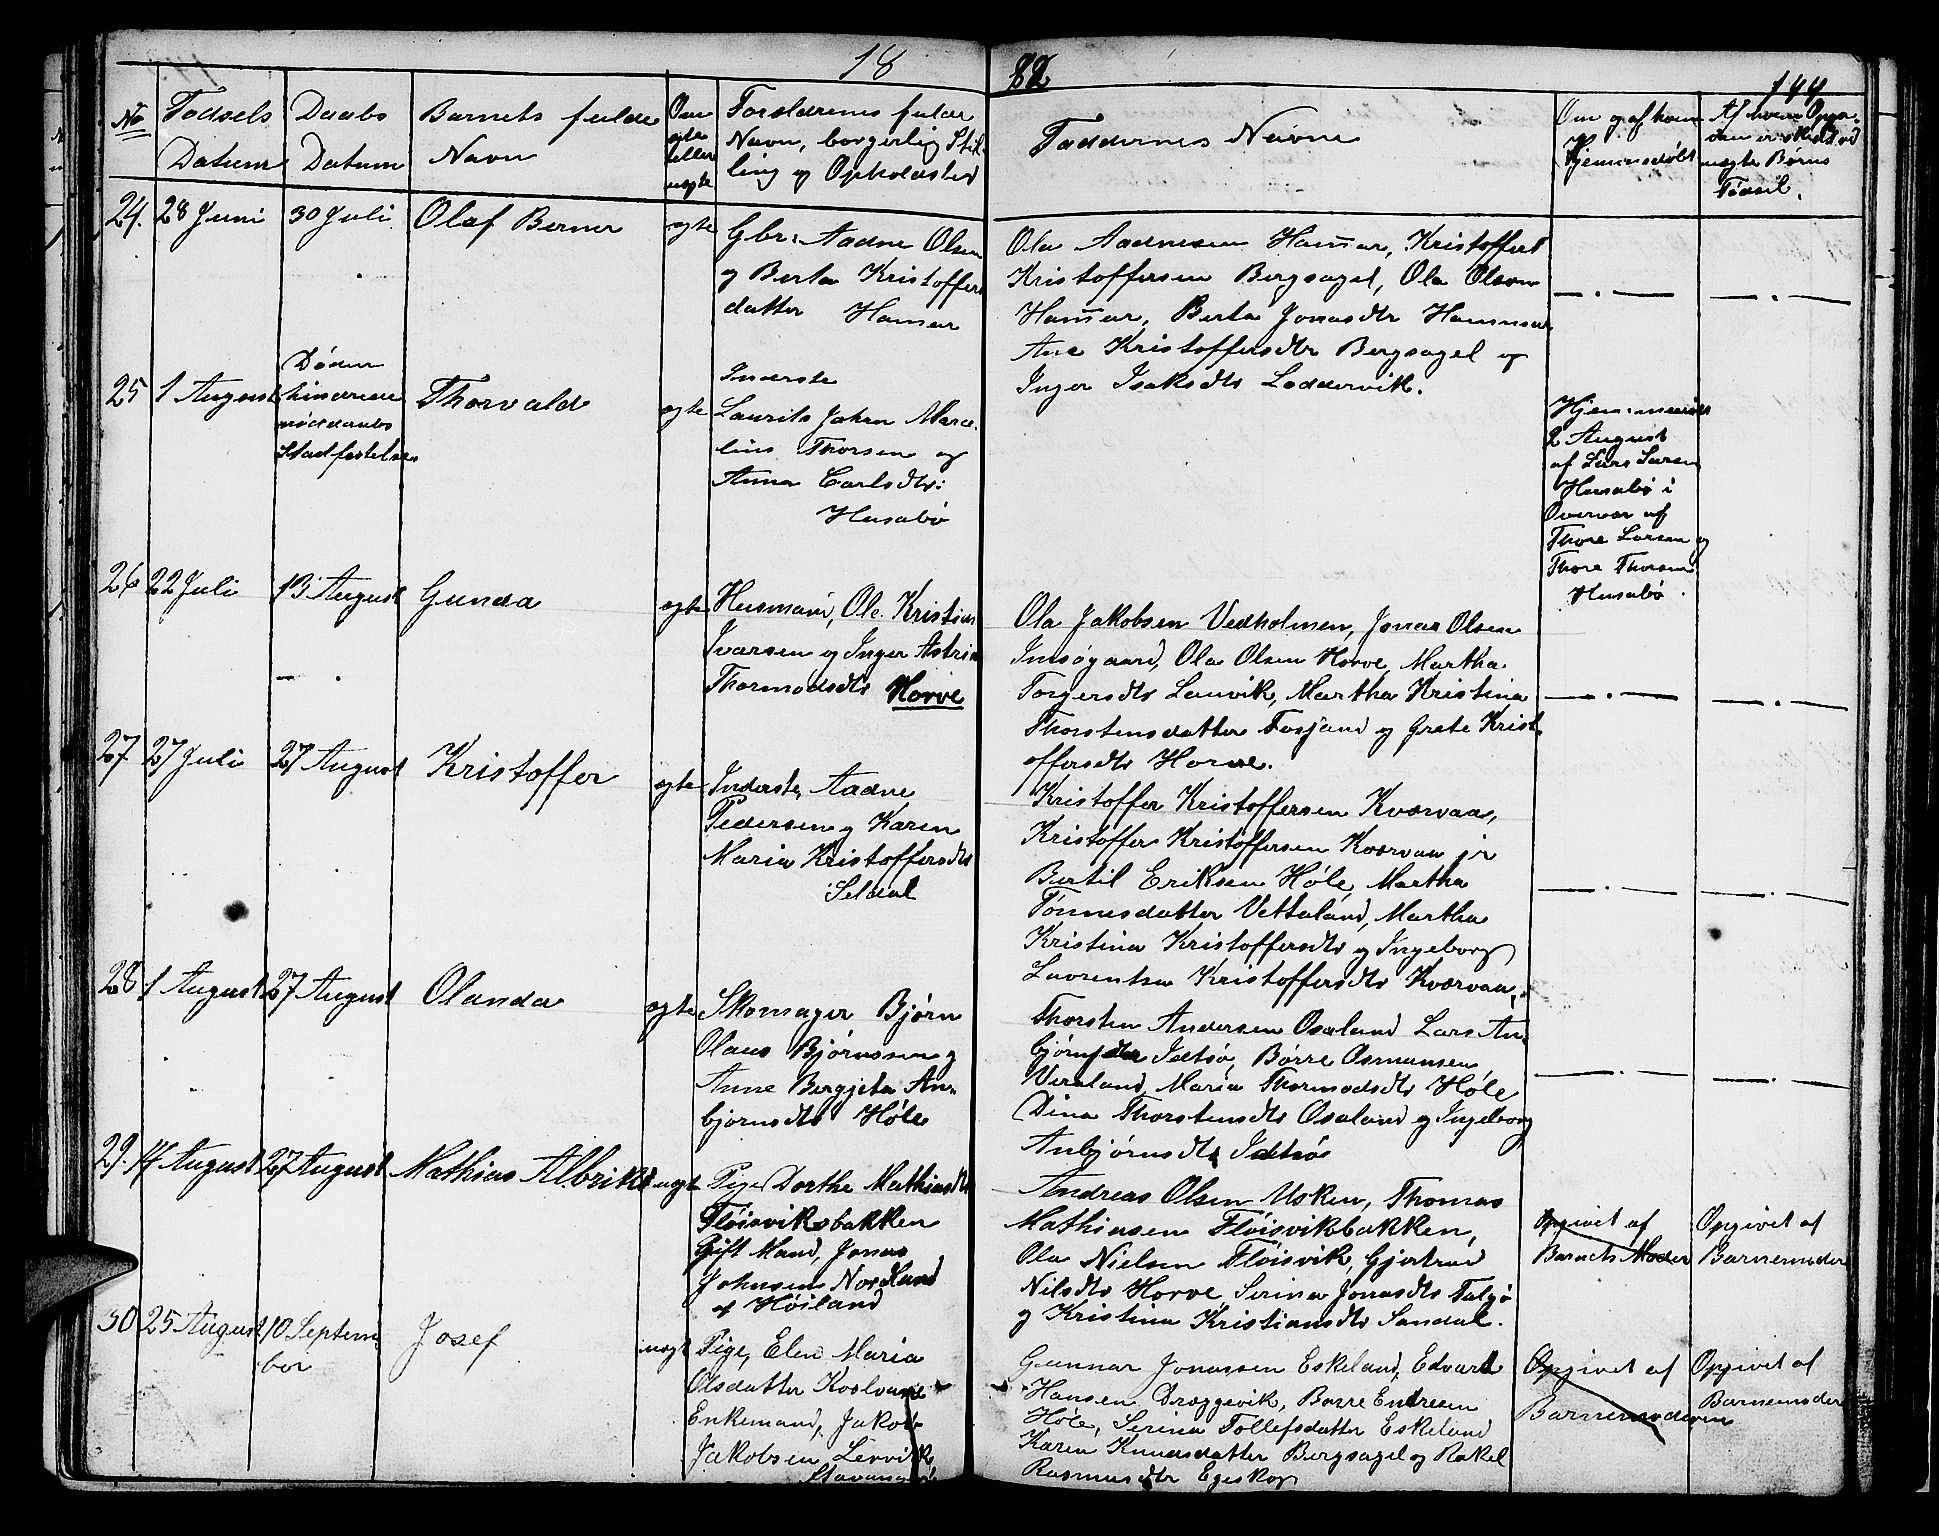 18
82
144
No
Fødsels Datum
Daabs Datum
Barnets fulde Navn
Om ægte eller uægte
Forældrenes fulde
Navn, borgerlig Stil-
ling og Opholdsted
Faddernes Navne
Om og af hvem
Hjemmedøbt
Af hvem Opga-
ven er skedt ved
uægte Børns
Fødsel.
24. 28 Juni
30 Juli
Olaf Berner
ægte
Gbr: Aadne Olsen
og Berta Kristoffers
datter Hamar
Ola Aadnesen Hamar, Kristoffer
Kristoffersen Bergsagel, Ola Olsen
Hamar, Berta Jonasdtr Hammar
Ane Kristoffersdtr Bergsagel og
Inger Isaksdtr Loddervik.
25 1 August
Døden
hindrede
nøddaabs
Stadfæstelse
Thorvald
ægte
Inderste
Laurits Johan Marce-
lius Thorsen og
Anna Carlsdtr:
Husabø
Hjemmedøbt
2 August
af Lars Larsen
Husabø i
Overvær af
Thore Larsen og
Thore Thorsen
Husabø.
26 22 Juli
13 August
Gunda
ægte
Husmand, Ole Kristian
Iversen og Inger Astrid
Thormodsdtr Horve
Ola Jakobsen Vedholmen, Jonas Olsen
Imsøgaard, Ola Olsen Horve, Martha
Torgersdtr Lauvik, Martha Kristina
Thorstensdatter Fosjand og Grete Krist-
offersdtr Horve.
27 27 Juli
27 August
Kristoffer
ægte
Inderste, Aadne
Pedersen og Karen
Maria Kristoffersdtr
Seldal
Kristoffer Kristoffersen Kværvaa,
Kristoffer Kristoffersen Kværvaa jr
Bertil Eriksen Høle, Martha
Tønnesdatter Vetteland, Martha
Kristina Kristoffersdtr og Ingeborg
Laurentsa Kristoffersdtr Kværvaa.
28 1 August
27 August
Olanda
ægte
Skomager Bjørn
Olaus Bjørnssen og
Anne Bergjeta An-
bjørnsdtr Høle
Thorsten Andersen Osaland Lars An-
bjørnsdtr Idtsø, Børre Osmunsen
Versland, Maria Thormodsdtr Høle
Dina Thorstensdtr Osaland og Ingeborg
Anbjørnsdtr Idtsøe
29. 14 August
27 August
Mathias Albrikt
uægt
Pige, Dorthe Mathiasdtr
Fløisviksbakken
Gift Mand, Jonas
Johnsen Nordland
af Høiland
Andreas Olsen Usken, Thomas
Mathiasen Fløisvikbakken,
Ola Nielsen Fløisvik, Gjertrud
Nilsdtr Horve, Serina Jonasdtr Talgø
og Kristina Kristiansdtr Sandal.
Opgivet af
Barnets Moder
Opgivet af
Barnemoder
30 25 August
10 Septem-
ber
Josef
uægt
Pige, Elen Maria
Olsdatter Koslvane
Enkemand, Jakob
Jakobsen Lervik,
Stavanger
Gunnar Jonassen Eskeland, Edvard
Hansen Dreggevik, Børre Endresen
Høle, Serina Tollefsdatter Eskeland
Karen Knudsdatter Bergsagel og Rakel
Rasmusdtr Egeskog
Opgivet af
Barnemoderen
Opgivet af
Barnemoder